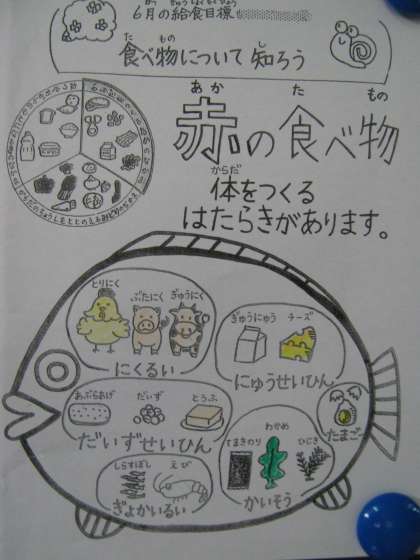 6月の給食目標
た もの し
食べ物について知ろう
あか た もの
赤の食べ物
からだ
体をつくる
はたらきがあります。
とりにく ぶたにく ぎゅうにく
にくるい
ぎゅうにゅう チーズ
にゅうせいひん
あぶらあげ だいず とうふ
だいずせいひん
たまご
しらすぼし えび
ぎょかいるい
てまきのり わかめ ひじき
かいそう